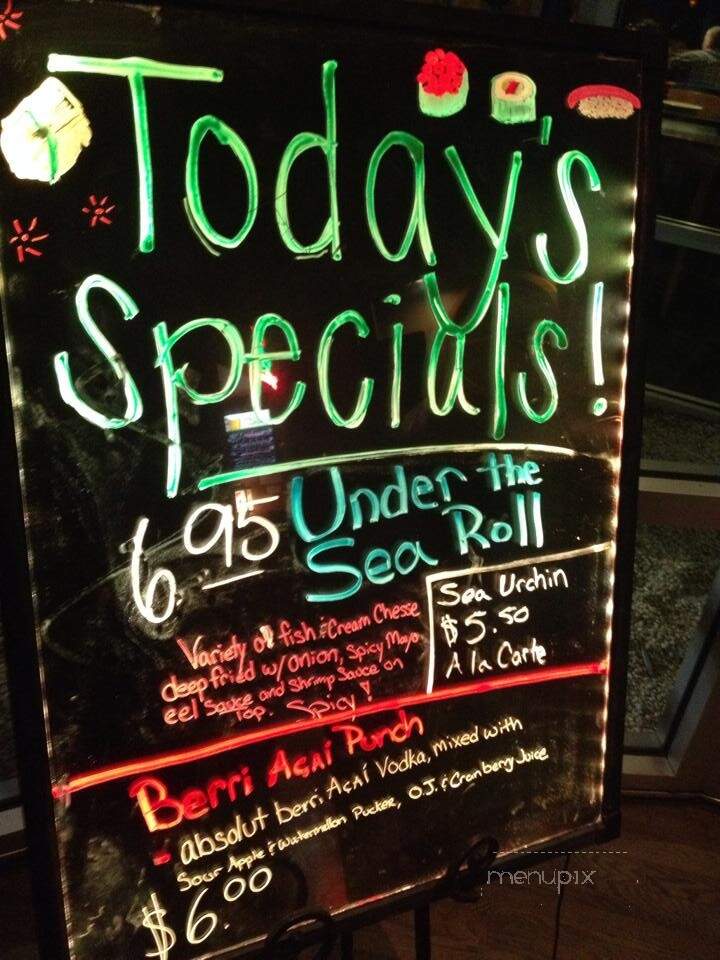 Today's
Specials!
6.95 Under the
Sea Roll
Variety of fish & Cream Chesse
deep fried w/ onion, Spicy Mayo
eel Sauce and Shrimp Sauce on
Top. Spicy!
Sea Urchin
$5.50
A la Carte
Berri AÇAÍ Punch
- absolut berri AÇAÍ Vodka, mixed with
Sour Apple & Watermellon Pucker, O.J. & Cranberry Juice
$6.00
menupix